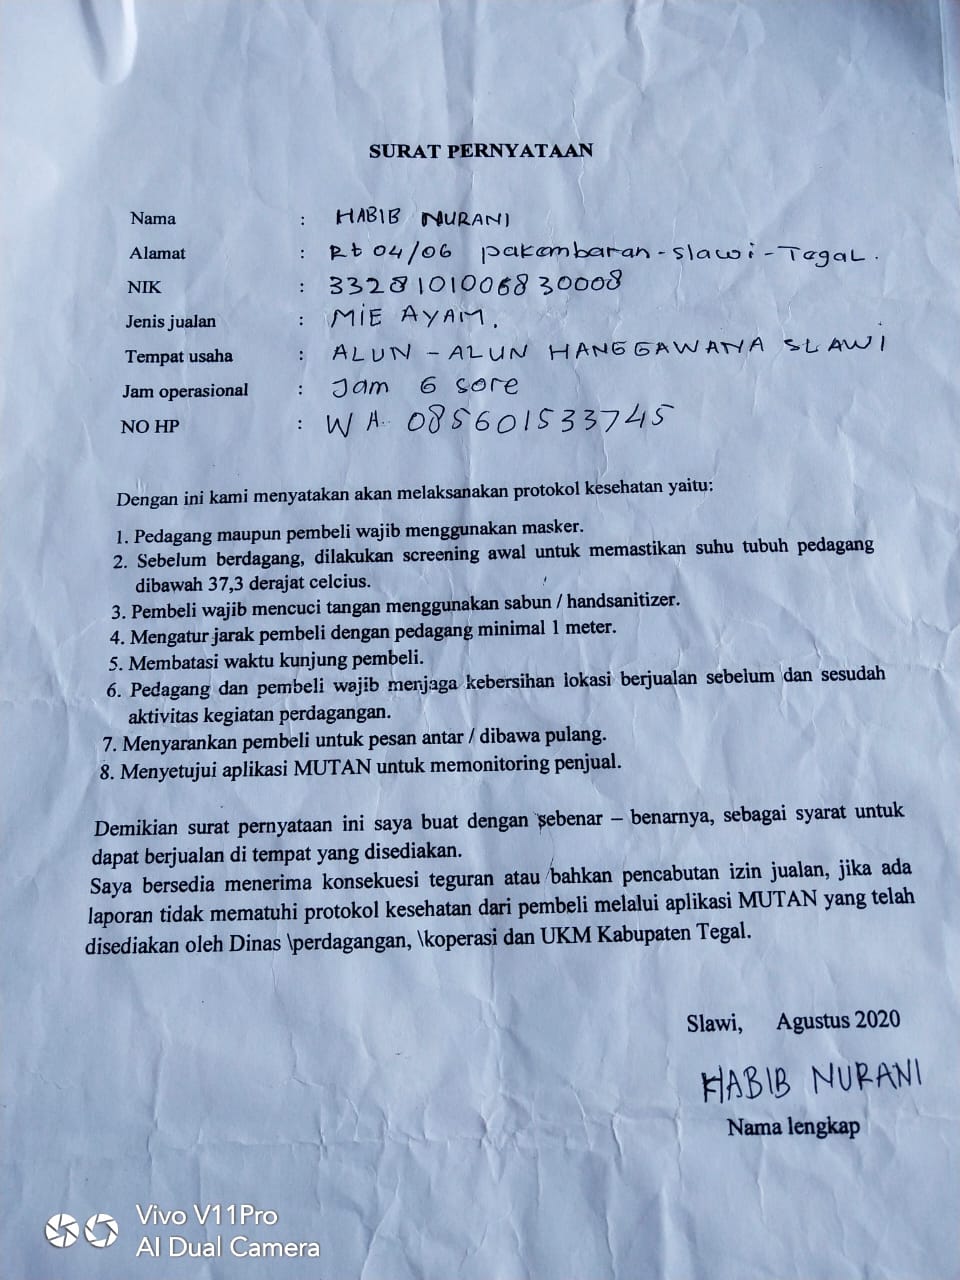 SURAT PERNYATAAN
Nama : HABIB NURANI
Alamat : Rt 04/06 pakembaran-slawi-Tegal.
NIK : 3328101006830008
Jenis jualan : MIE AYAM.
Tempat usaha : ALUN-ALUN HANGGAWANA SLAWI
Jam operasional : Jam 6 sore
NO HP : WA. 085601533745
Dengan ini kami menyatakan akan melaksanakan protokol kesehatan yaitu:
1. Pedagang maupun pembeli wajib menggunakan masker.
2. Sebelum berdagang, dilakukan screening awal untuk memastikan suhu tubuh pedagang
dibawah 37,3 derajat celcius.
3. Pembeli wajib mencuci tangan menggunakan sabun / handsanitizer.
4. Mengatur jarak pembeli dengan pedagang minimal 1 meter.
5. Membatasi waktu kunjung pembeli.
6. Pedagang dan pembeli wajib menjaga kebersihan lokasi berjualan sebelum dan sesudah
aktivitas kegiatan perdagangan.
7. Menyarankan pembeli untuk pesan antar / dibawa pulang.
8. Menyetujui aplikasi MUTAN untuk memonitoring penjual.
Demikian surat pernyataan ini saya buat dengan sebenar – benarnya, sebagai syarat untuk
dapat berjualan di tempat yang disediakan.
Saya bersedia menerima konsekuesi teguran atau bahkan pencabutan izin jualan, jika ada
laporan tidak mematuhi protokol kesehatan dari pembeli melalui aplikasi MUTAN yang telah
disediakan oleh Dinas \perdagangan, \koperasi dan UKM Kabupaten Tegal.
Slawi, Agustus 2020
HABIB NURANI
Nama lengkap
Vivo V11Pro
AI Dual Camera